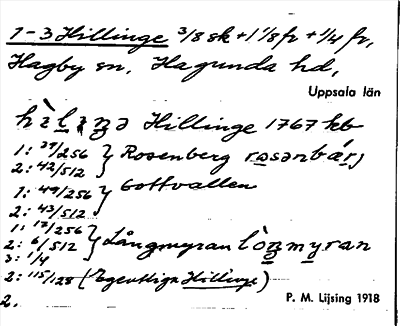 1-3 Hillinge 3/8 sk + 1 1/8 fr + 1/4 fr,
Hagby sn, Hagunda hd,
Uppsala län
Hillinge 1767 kb
1: 39/256 } Rosenberg
2: 42/512
1: 49/256 } Gottvallen
2: 43/512
1: 17/256 } Långmyran
2: 6/512
3: 1/4
2: 115/128 (Egentliga Hillinge)
2.
P. M. Lijsing 1918